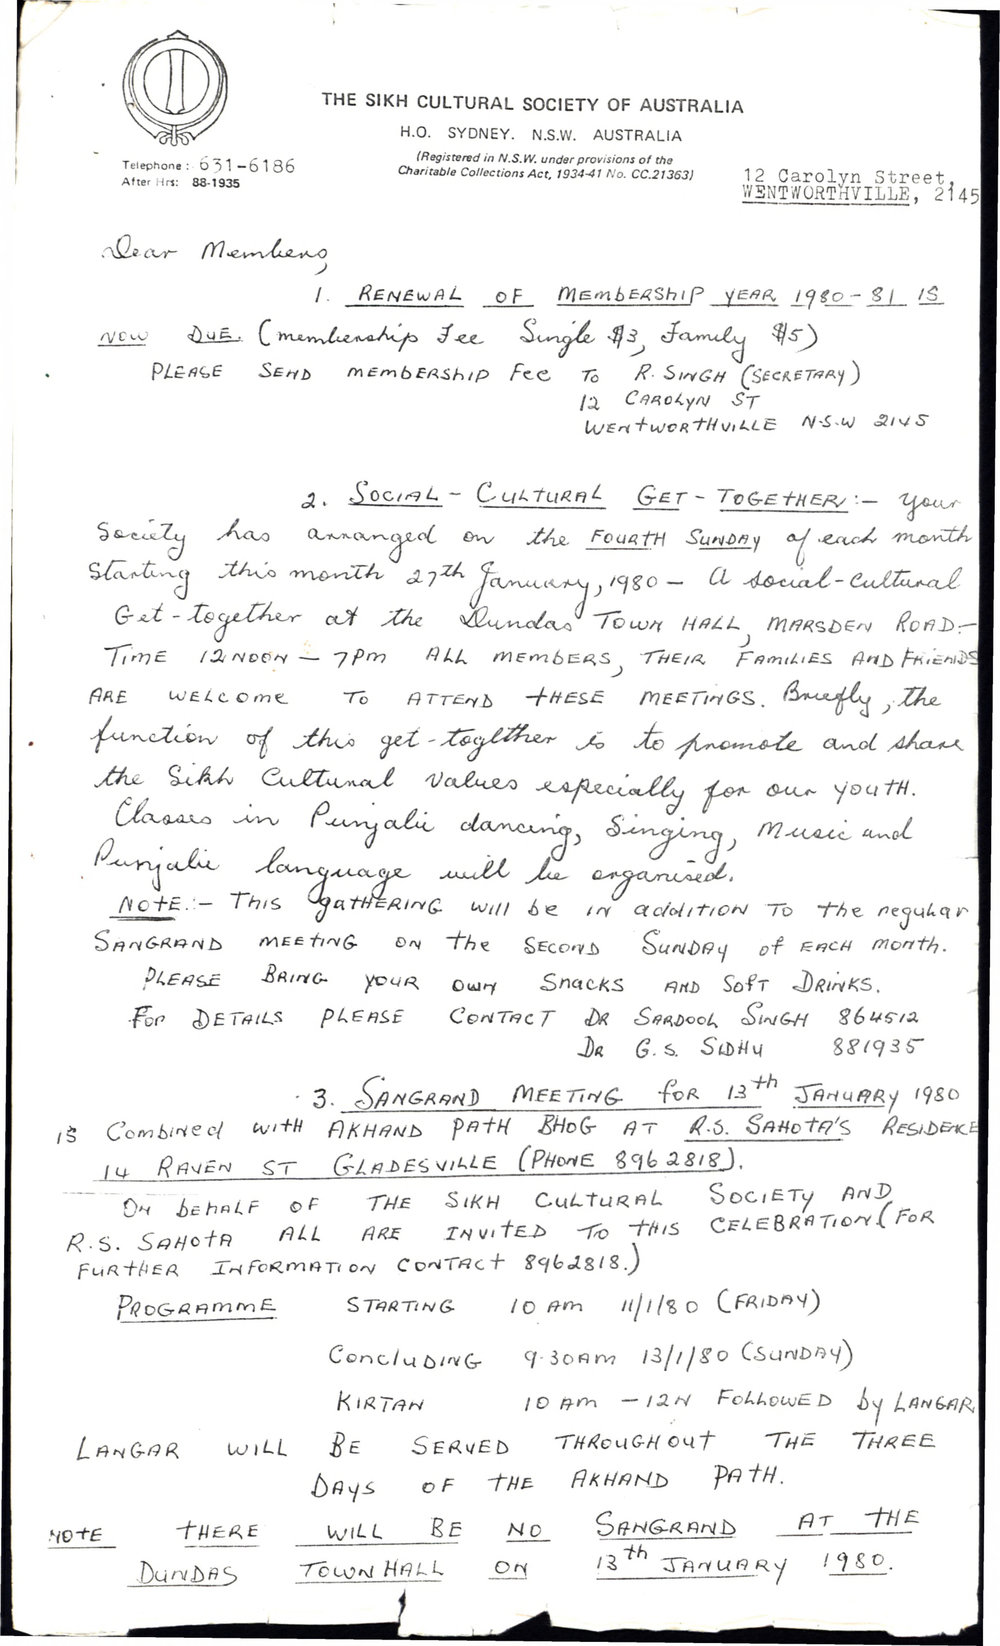 THE SIKH CULTURAL SOCIETY OF AUSTRALIA
H.O. SYDNEY. N.S.W. AUSTRALIA
(Registered in N.S.W. under provisions of the
Charitable Collections Act, 1934-41 No. CC.21363)
Telephone: 631-6186
After Hrs: 88-1935
12 Carolyn Street,
WENTWORTHVILLE, 2145
Dear Members,
1. RENEWAL OF MEMBERSHIP YEAR 1980-81 IS
NOW DUE. (membership Fee Single $3, Family $5)
PLEASE SEND MEMBERSHIP FEE TO R. SINGH (SECRETARY)
12 CAROLYN ST
WENTWORTHVILLE N.S.W 2145
2. SOCIAL - CULTURAL GET-TOGETHER:- Your
Society has arranged on the FOURTH SUNDAY of each month
Starting this month 27th January, 1980 - A social-cultural
Get-together at the Dundas TOWN HALL, MARSDEN ROAD.-
TIME 12 NOON - 7PM ALL MEMBERS, THEIR FAMILIES AND FRIENDS
ARE WELCOME TO ATTEND THESE MEETINGS. Briefly, the
function of this get-toglther is to promote and share
the Sikh Cultural Values especially for our YOUTH.
Classes in Punjabi dancing, Singing, Music and
Punjabi language will be organised.
NOTE:- THIS gATHERING WILL be IN addition TO the regular
SANGRAND MEETING ON the SECOND SUNDAY of EACH MONTH.
PLEASE BRING YOUR OWN SNACKS AND SOFT DRINKS.
FOR DETAILS PLEASE CONTACT DR SARDOOL SINGH 864512
DR G.S. SIDHU 881935
3. SANGRAND MEETING FOR 13th JANUARY 1980
IS Combined WITH AKHAND PATH BHOG AT R.S. SAHOTA'S RESIDENCE
14 RAVEN ST GLADESVILLE (PHONE 896 2818).
ON BEHALF OF THE SIKH CULTURAL SOCIETY AND
R.S. SAHOTA ALL ARE INVITED TO THIS CELEBRATION (FOR
FURTHER INFORMATION CONTACT 8962818.)
PROGRAMME STARTING 10 AM 11/1/80 (FRIDAY)
CONCLUDING 9.30AM 13/1/80 (SUNDAY)
KIRTAN 10 AM - 12N FOLLOWED by LANGAR
LANGAR WILL BE SERVED THROUGHOUT THE THREE
DAYS OF THE AKHAND PATH.
NOTE THERE WILL BE NO SANGRAND AT THE
DUNDAS TOWN HALL ON 13th JANUARY 1980.